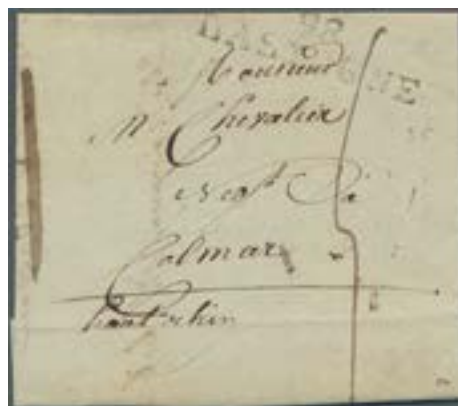 Monsieur
Mr Chevalier
Negt à
Colmar
haut rhin